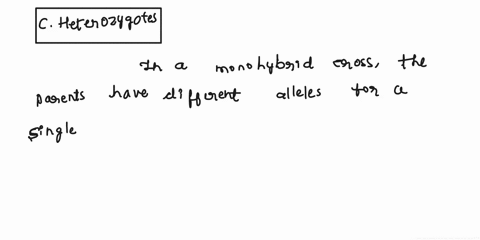 C. Heterozygotes
In a monohybrid cross, the
parents have different alleles for a
single